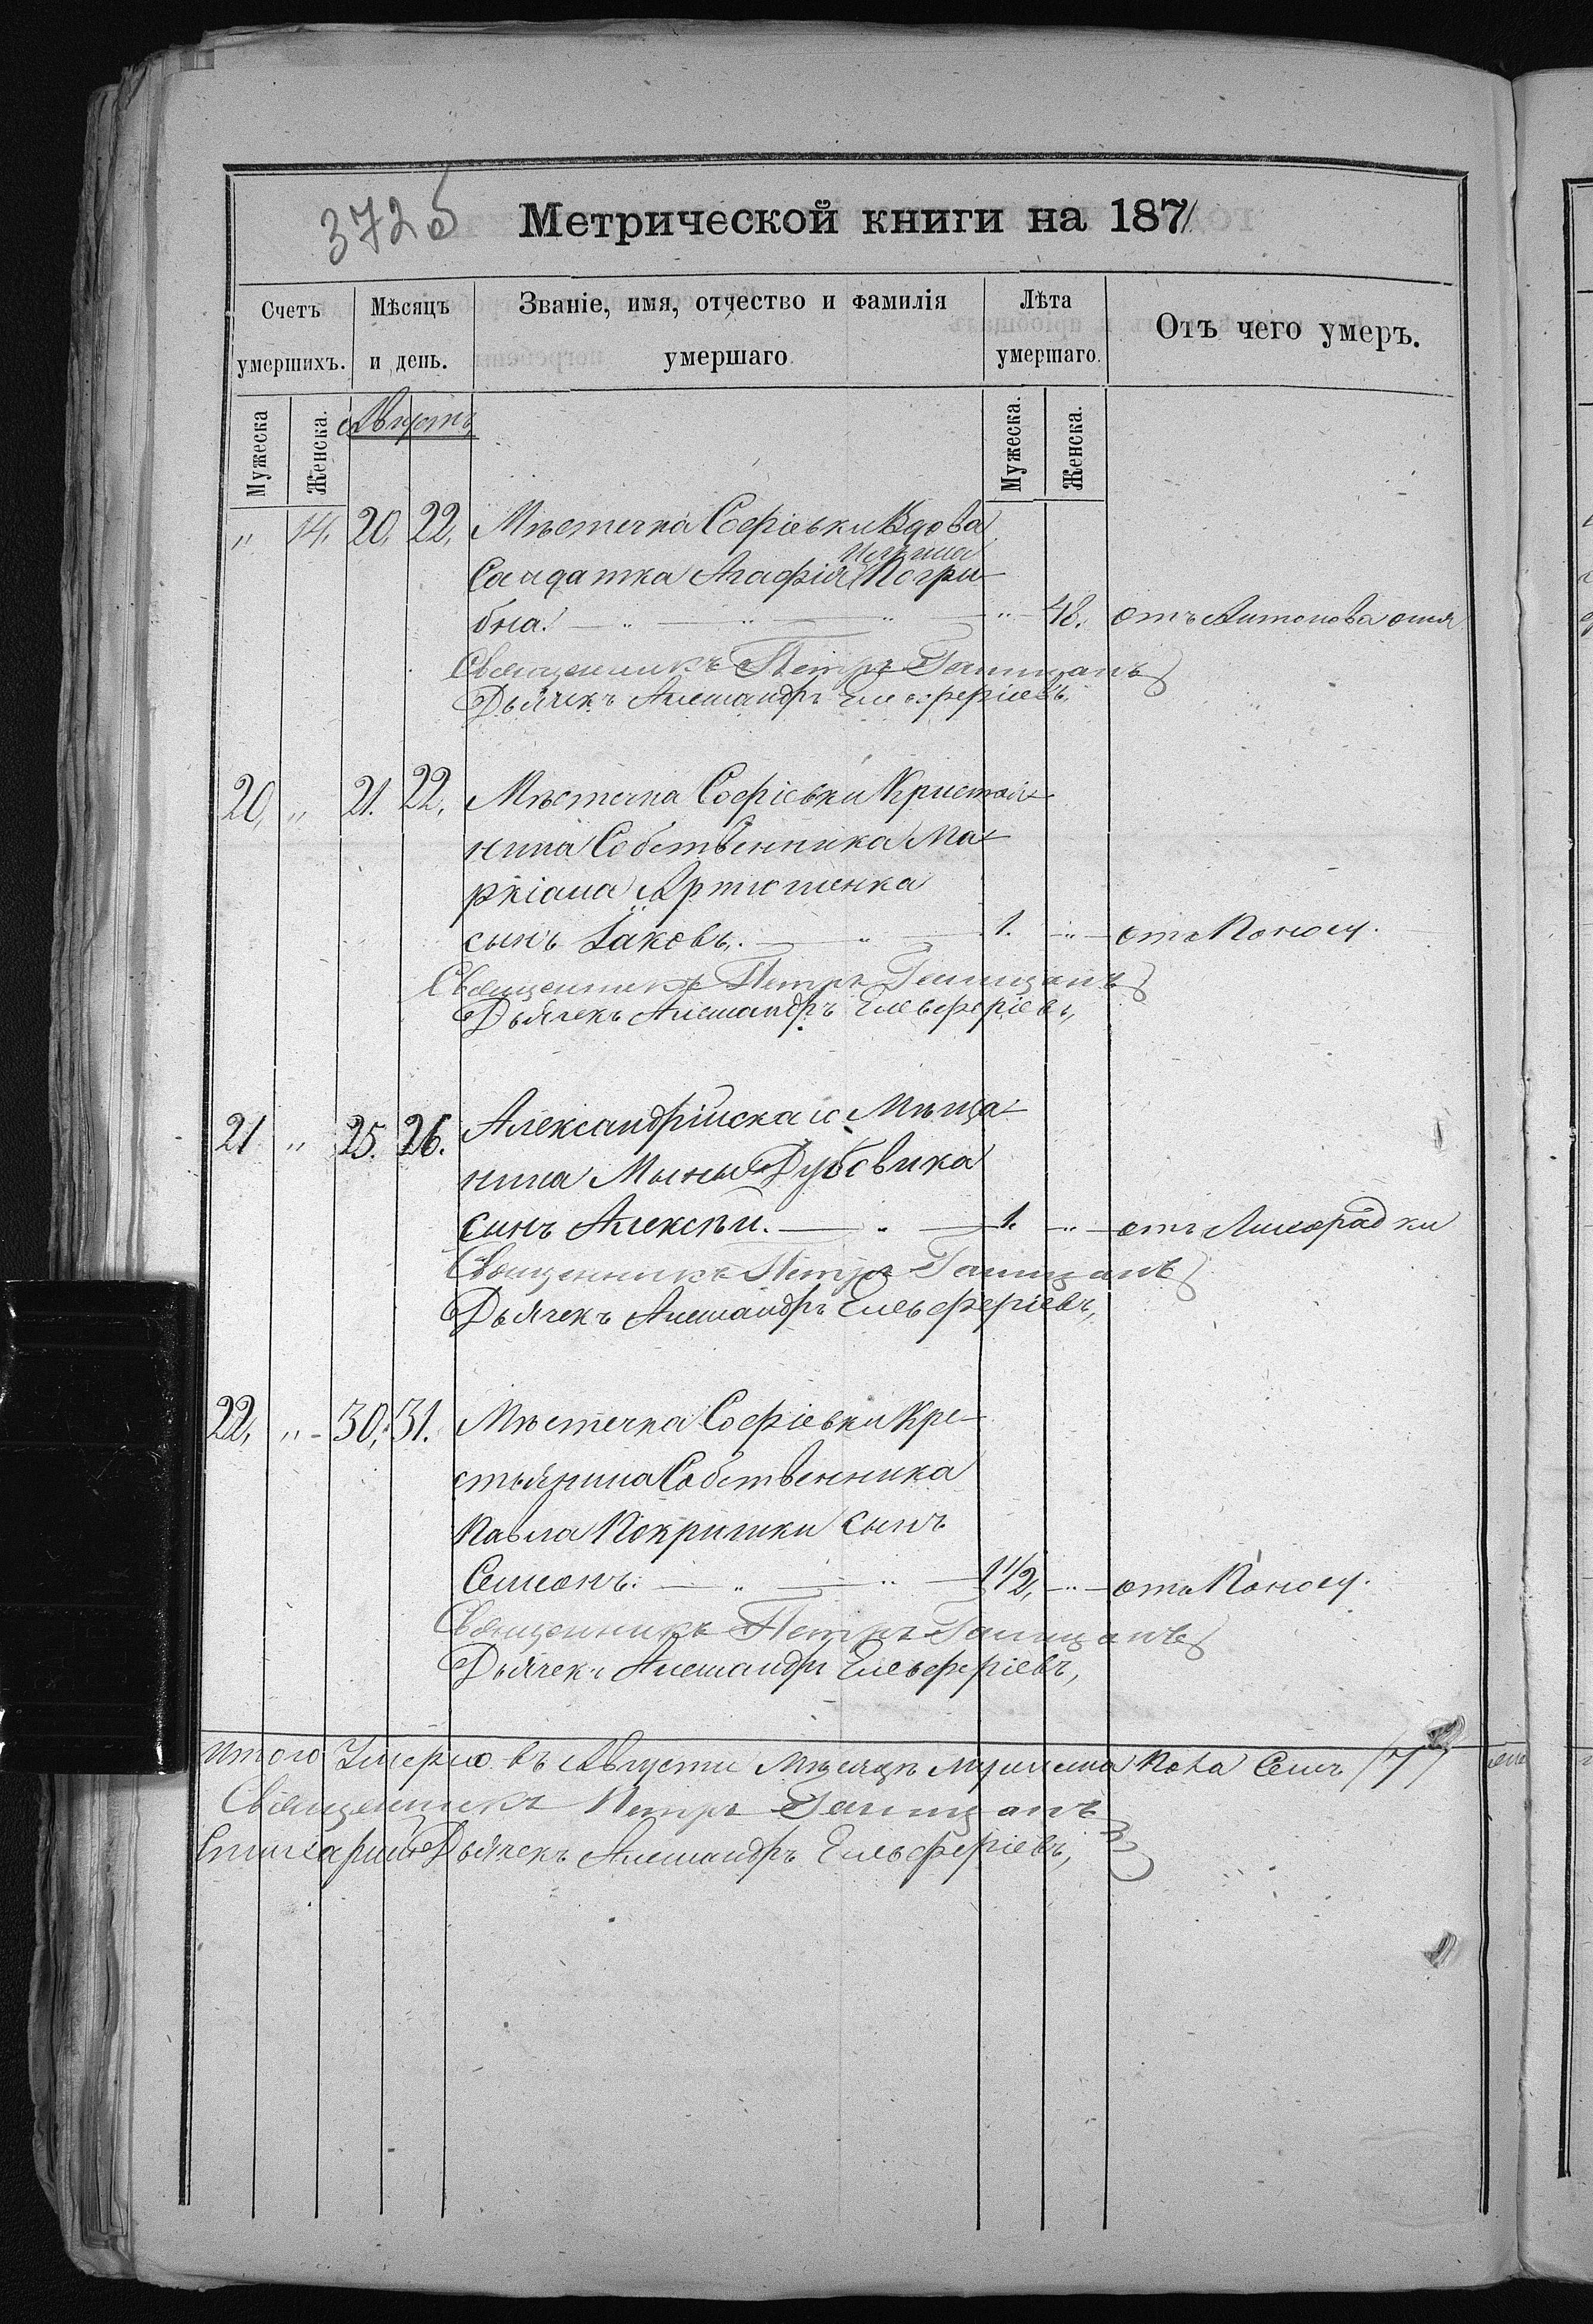 372 б
Метрической книги на 1871
Счетъ умершихъ. Мѣсяцъ и день. Званіе, имя, отчество и фамилія умершаго Лѣта умершаго. Отъ чего умеръ.
Мужеска Женска. Августъ Мужеска. Женска.
" 14. 20. 22. Мѣстечка Софіевки Вдова
Салдатка Агафія Погри-
бна. " 48. отъ Антонова огня
Священникъ Петръ
Дьячекъ Александръ Елевферіевъ,
20, " 21. 22. Мѣстечка Софіевки Кристья-
нина Собственника Ма-
ркіана Артюшенка
сынъ Іаковъ. 1. " отъ Поносу.
Священникъ Петръ
Дьячекъ Александръ Елевферіевъ,
21 " 25. 26. Александрійскаго Мѣща-
нина Мыны Дубовика
сынъ Алексѣй. 1. " отъ Лихорадки
Священникъ Петръ
Дьячекъ Александръ Елевферіевъ,
22, " 30, 31. Мѣстечка Софіевки Кре-
стьянина Собственника
Павла Покришки сынъ
Симеонъ. 1 1/2, " отъ Поносу.
Священникъ Петръ
Дьячекъ Александръ Елевферіевъ,
Итого Умерло въ Августи Мѣсяцѣ мужеска пола Семь /7/
Священникъ Петръ
Дьячекъ Александръ Елевферіевъ,